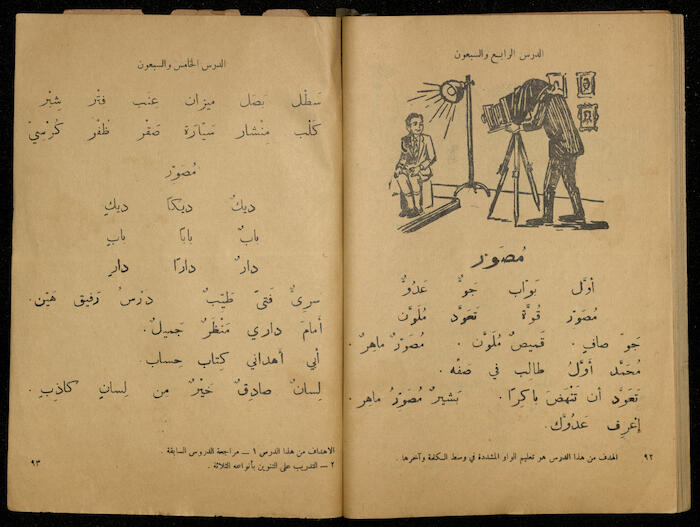 الدرس الرابع والسبعون
مُصَوِّر
أَوَّل بَوّاب جَوٌّ عَدُوٌّ
مُصَوِّر قُوَّة تَعَوَّد مُلَوَّن
جَوّ صافٍ . قَميصٌ مُلَوَّن . مُصَوِّرٌ ماهِرٌ .
مُحَمَّد أَوَّلُ طالِب في صَفِّه .
تَعَوَّد أن تَنْهَضَ باكِرًا . بَشيرٌ مُصَوِّرٌ ماهِر .
إعْرِف عَدُوَّك .
الهدف من هذا الدرس هو تعليم الواو المشددة في وسط الكلمة وآخرها .
٩٢
الدرس الخامس والسبعون
سَطْل بَصَل ميزان عِنَب فِتْر شِبْر
كَلْب مِنْشار سَيّارَة صَقْر ظُفْر كُرْسيّ
مُصَوِّر
ديكٌ ديكًا ديكٍ
بابٌ بابًا بابٍ
دارٌ دارًا دارٍ
سَرِيٌّ فَتىً طَيِّبٌ دَرْسٌ رَفيق هَيِّن .
أمامَ داري مَنْظَرٌ جَميلٌ .
أبي أهْداني كِتابَ حِساب .
لِسانٌ صادِقٌ خَيْرٌ مِن لِسانٍ كاذِبٍ .
الاهداف من هذا الدرس ١ – مراجعة الدروس السابقة .
٢ – التدريب على التنوين بأنواعه الثلاثة .
٩٣